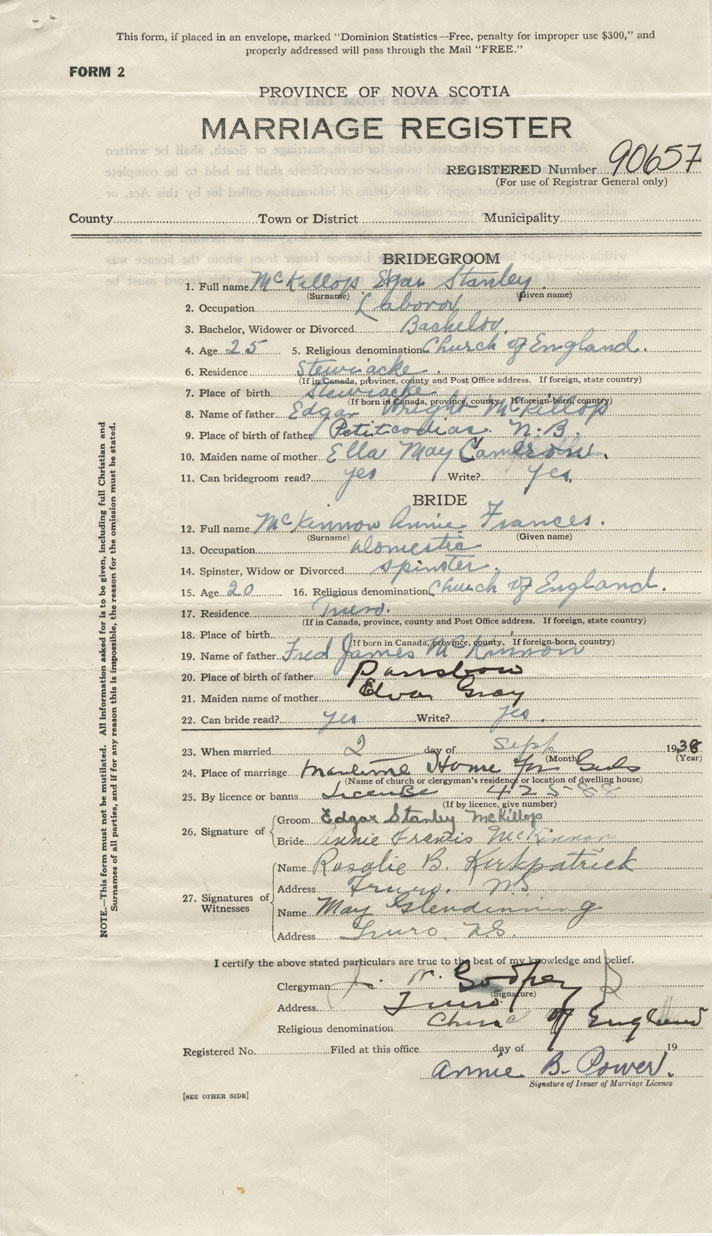 This form, if placed in an envelope, marked "Dominion Statistics—Free, penalty for improper use $300," and
properly addressed will pass through the Mail "FREE."
FORM 2
PROVINCE OF NOVA SCOTIA
MARRIAGE REGISTER
REGISTERED Number 90657
(For use of Registrar General only)
County Town or District Municipality
BRIDEGROOM
1. Full name McKillop Edgar Stanley.
(Surname) (Given name)
2. Occupation Labovor
3. Bachelor, Widower or Divorced Bachelor.
4. Age 25 5. Religious denomination Church of England.
6. Residence Stewiacke.
(If in Canada, province, county and Post Office address. If foreign, state country)
7. Place of birth Stewiacke
(If born in Canada, province, county. If foreign-born, country)
8. Name of father Edgar Wright McKillop
9. Place of birth of father Petitcodiac N.B.
10. Maiden name of mother Ella May Cameron.
11. Can bridegroom read? yes Write? yes.
BRIDE
12. Full name McKinnon Annie Frances.
(Surname) (Given name)
13. Occupation domestic
14. Spinster, Widow or Divorced spinster.
15. Age 20 16. Religious denomination Church of England.
17. Residence Truro.
(If in Canada, province, county and Post Office address. If foreign, state country)
18. Place of birth
(If born in Canada, province, county. If foreign-born, country)
19. Name of father Fred James McKinnon
20. Place of birth of father Parrsboro
21. Maiden name of mother Elva Gray
22. Can bride read? yes Write? yes.
23. When married 2 day of Sept 1938
(Month) (Year)
24. Place of marriage Maritime Home for Girls
(Name of church or clergyman's residence or location of dwelling house)
25. By licence or banns License 42588
(If by licence, give number)
26. Signature of Groom Edgar Stanley McKillop
Bride Annie Francis McKinnon
27. Signatures of Witnesses
Name Rosalie B. Kirkpatrick
Address Truro. NS
Name May Glendinning
Address Truro, N.S.
I certify the above stated particulars are true to the best of my knowledge and belief.
Clergyman J. W. Godfrey
(Signature)
Address Truro.
Religious denomination Church of England
Registered No. Filed at this office day of 19
Annie B. Power.
Signature of Issuer of Marriage Licence
[SEE OTHER SIDE]
NOTE.—This form must not be mutilated. All information asked for is to be given, including full Christian and
Surnames of all parties, and if for any reason this is impossible, the reason for the omission must be stated.